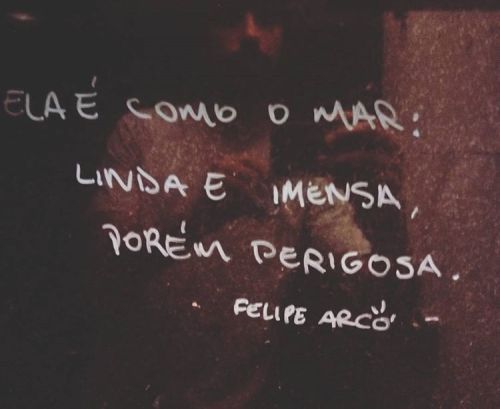 ELA É COMO O MAR:
LINDA E IMENSA,
PORÉM PERIGOSA.
FELIPE ARCO -